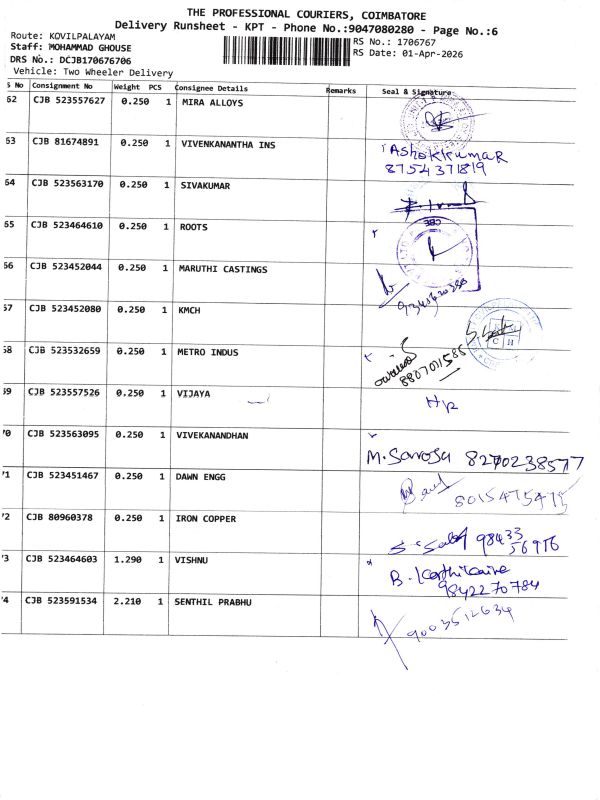 THE PROFESSIONAL COURIERS, COIMBATORE
Delivery Runsheet - KPT - Phone No.:9047080280 - Page No.:6
Route: KOVILPALAYAM
Staff: MOHAMMAD GHOUSE
RS No.: 1706767
DRS No.: DCJB170676706
RS Date: 01-Apr-2026
Vehicle: Two Wheeler Delivery
S No Consignment No Weight PCS Consignee Details Remarks Seal & Signature
62 CJB 523557627 0.250 1 MIRA ALLOYS
63 CJB 81674891 0.250 1 VIVENKANANTHA INS AshokkumaR
8754371819
64 CJB 523563170 0.250 1 SIVAKUMAR
65 CJB 523464610 0.250 1 ROOTS CBE
66 CJB 523452044 0.250 1 MARUTHI CASTINGS
67 CJB 523452080 0.250 1 KMCH
68 CJB 523532659 0.250 1 METRO INDUS 8807011585
69 CJB 523557526 0.250 1 VIJAYA
70 CJB 523563095 0.250 1 VIVEKANANDHAN M. Saroja 8270238577
71 CJB 523451467 0.250 1 DAWN ENGG 8015475475
72 CJB 80960378 0.250 1 IRON COPPER 98433
56916
73 CJB 523464603 1.290 1 VISHNU B. Karthikaine
9842270784
74 CJB 523591534 2.210 1 SENTHIL PRABHU 9003512634